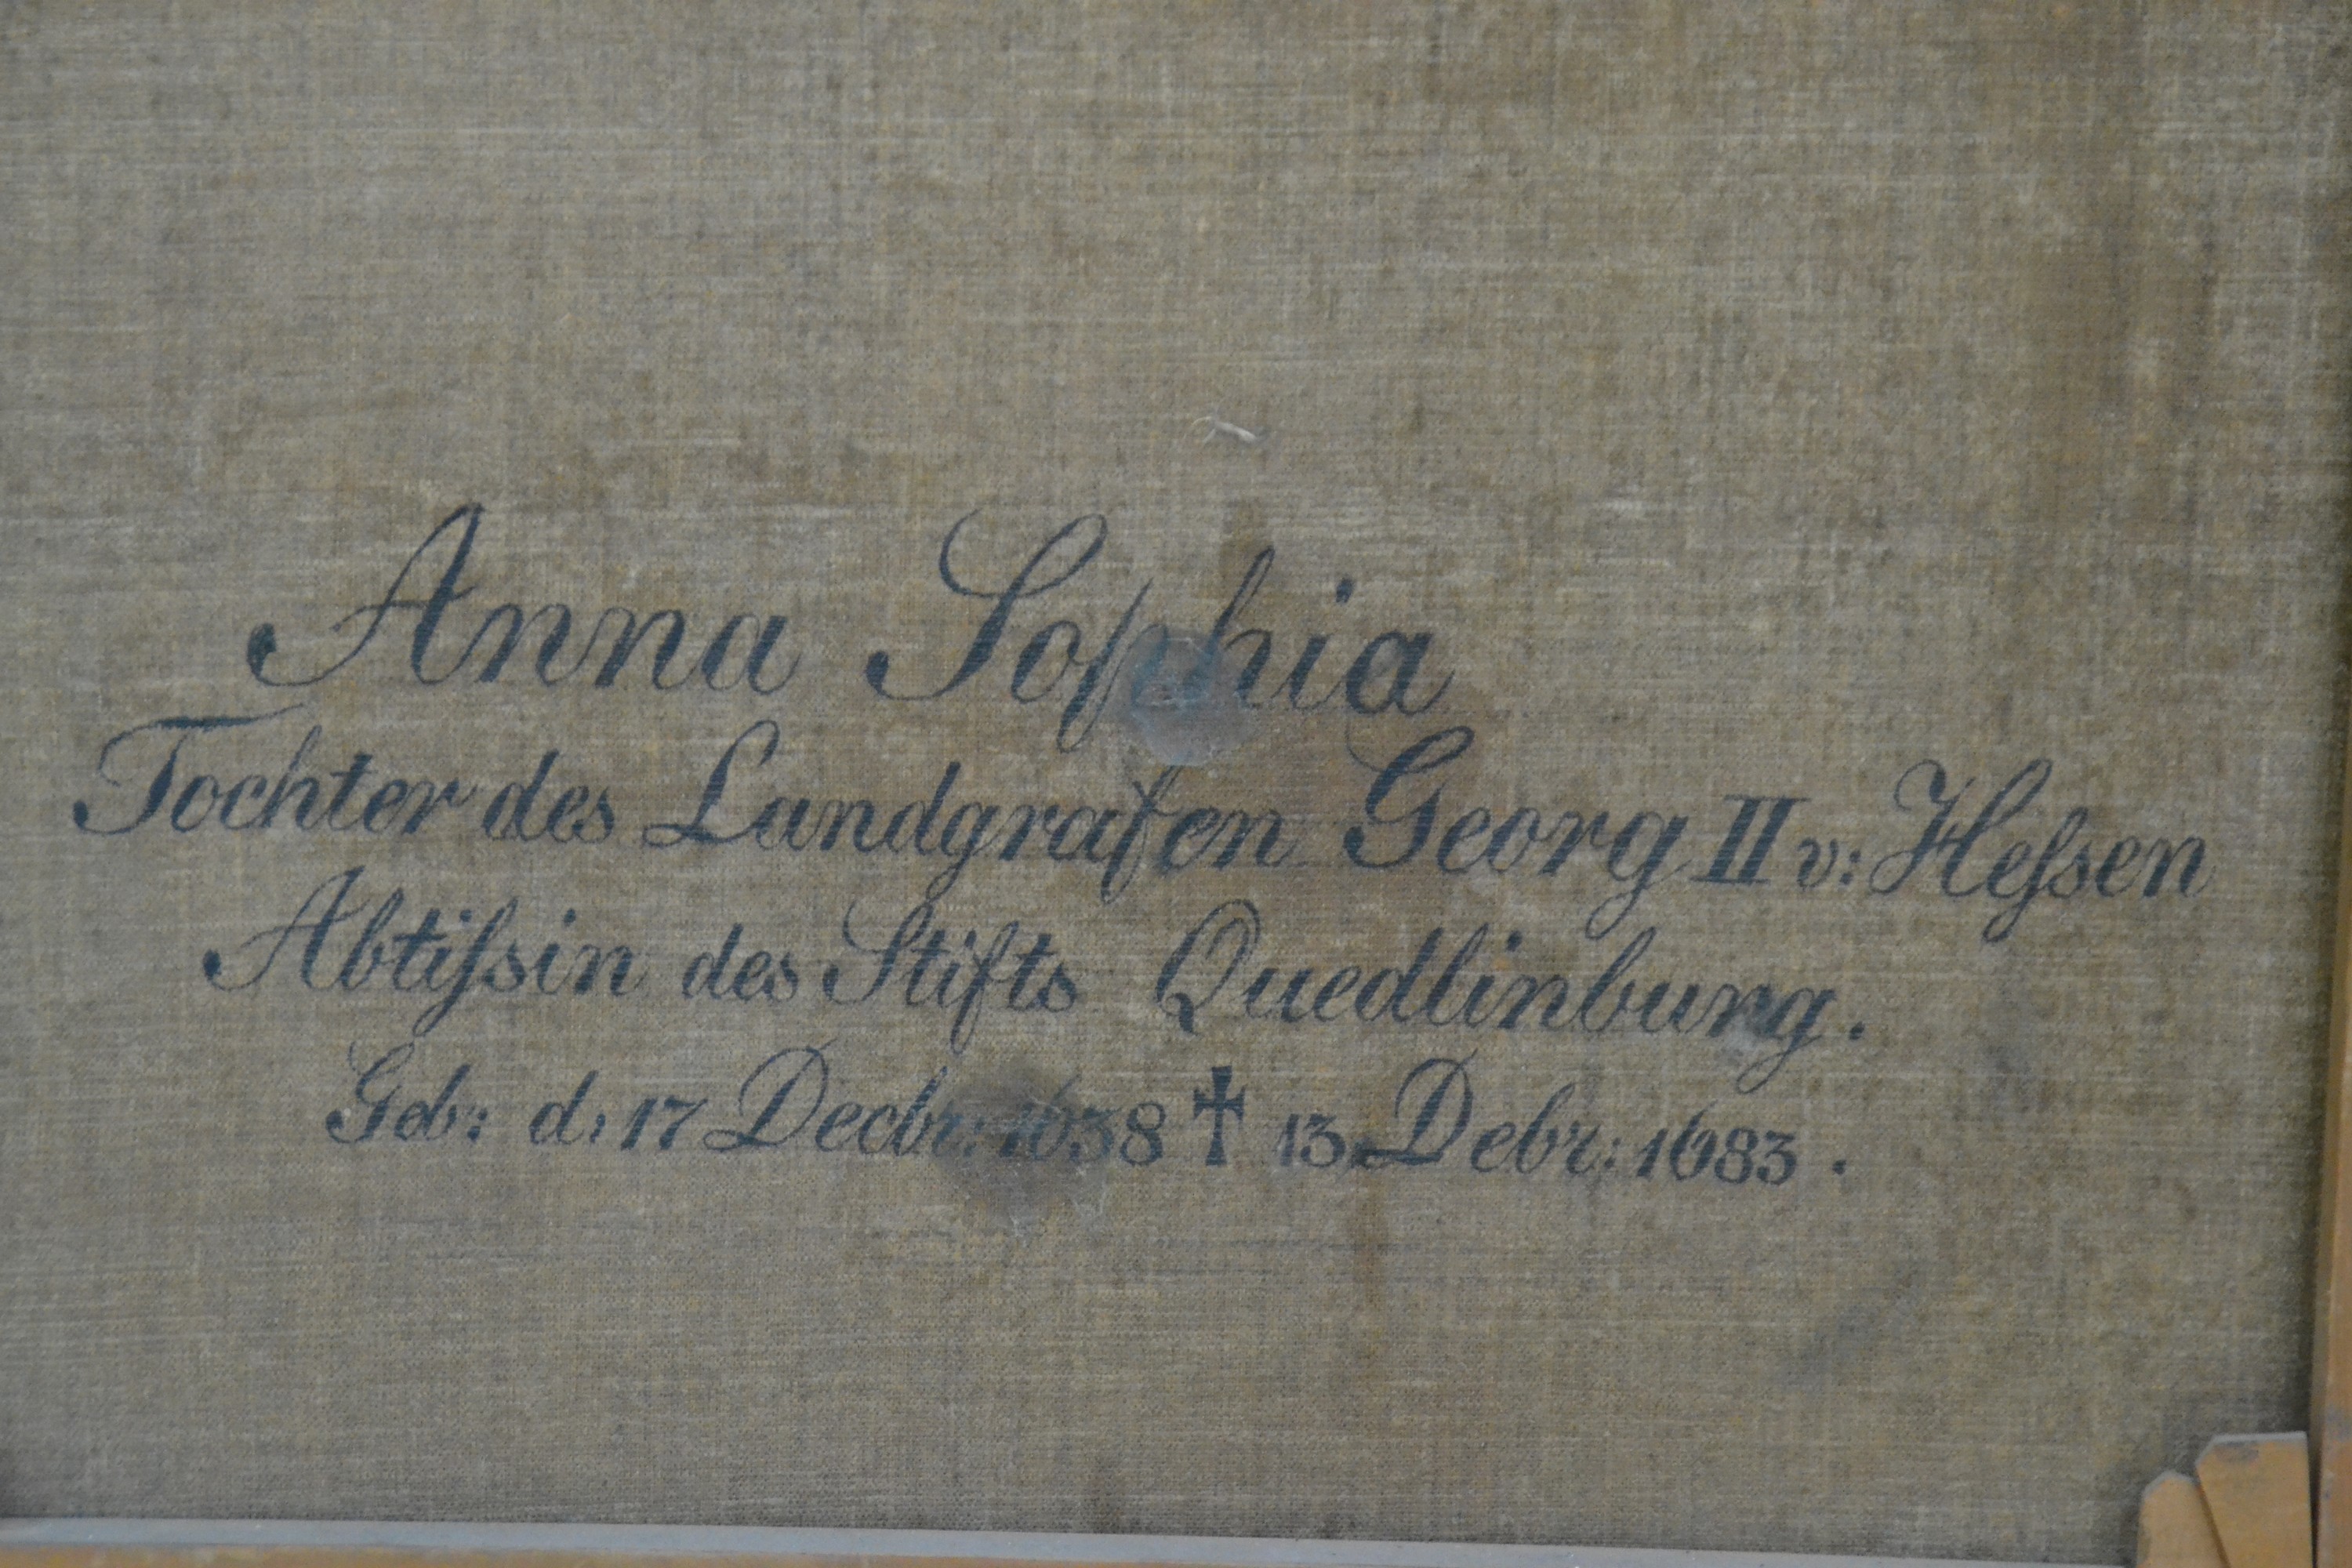 Anna Sophia
Tochter des Landgrafen Georg II v: Heſsen
Abtiſsin des Stifts Quedlinburg.
Geb: d: 17 Decbr: 1638 † 13 Debr: 1683.